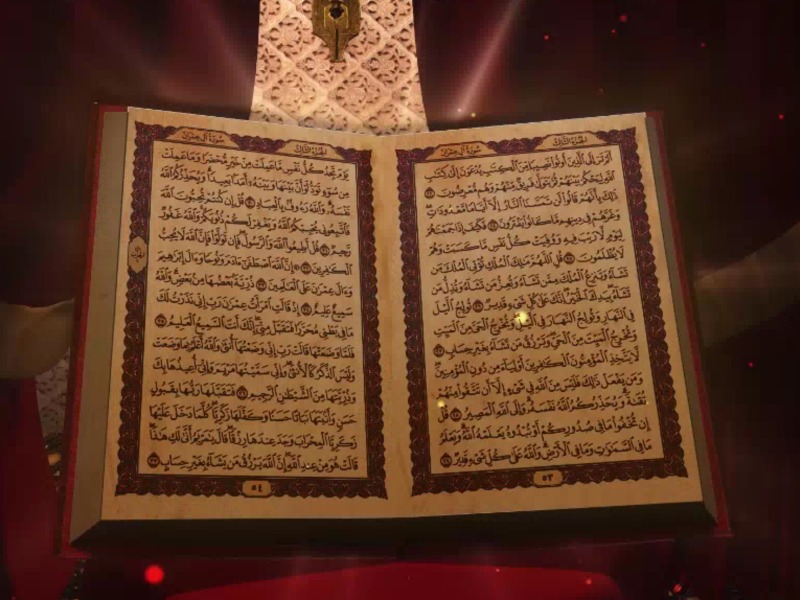 الجزء الثالث سورة آل عمران
ألم تر إلى الذين أوتوا نصيبا من الكتب يدعون إلى كتب
الله ليحكم بينهم ثم يتولى فريق منهم وهم معرضون ٢٣
ذلك بأنهم قالوا لن تمسنا النار إلا أياما معدودت
وغرهم في دينهم ما كانوا يفترون ٢٤ فكيف إذا جمعنهم
ليوم لا ريب فيه ووفيت كل نفس ما كسبت وهم
لا يظلمون ٢٥ قل اللهم ملك الملك تؤتي الملك من
تشاء وتنزع الملك ممن تشاء وتعز من تشاء وتذل من
تشاء بيدك الخير إنك على كل شيء قدير ٢٦ تولج اليل
في النهار وتولج النهار في اليل وتخرج الحي من الميت
وتخرج الميت من الحي وترزق من تشاء بغير حساب ٢٧
لا يتخذ المؤمنون الكفرين أولياء من دون المؤمنين
ومن يفعل ذلك فليس من الله في شيء إلا أن تتقوا منهم
تقىة ويحذركم الله نفسه وإلى الله المصير ٢٨ قل
إن تخفوا ما في صدوركم أو تبدوه يعلمه الله ويعلم
ما في السموت وما في الأرض والله على كل شيء قدير ٢٩
٥٣
الجزء الثالث سورة آل عمران
يوم تجد كل نفس ما عملت من خير محضرا وما عملت
من سوء تود لو أن بينها وبينه أمدا بعيدا ويحذركم الله
نفسه والله رءوف بالعباد ٣٠ قل إن كنتم تحبون الله
فاتبعوني يحببكم الله ويغفر لكم ذنوبكم والله غفور
رحيم ٣١ قل أطيعوا الله والرسول فإن تولوا فإن الله لا يحب
الكفرين ٣٢ إن الله اصطفى ءادم ونوحا وءال إبرهيم
وءال عمرن على العلمين ٣٣ ذرية بعضها من بعض والله
سميع عليم ٣٤ إذ قالت امرأت عمرن رب إني نذرت لك
ما في بطني محررا فتقبل مني إنك أنت السميع العليم ٣٥
فلما وضعتها قالت رب إني وضعتها أنثى والله أعلم بما وضعت
وليس الذكر كالأنثى وإني سميتها مريم وإني أعيذها بك
وذريتها من الشيطن الرجيم ٣٦ فتقبلها ربها بقبول
حسن وأنبتها نباتا حسنا وكفلها زكريا كلما دخل عليها
زكريا المحراب وجد عندها رزقا قال يمريم أنى لك هذا
قالت هو من عند الله إن الله يرزق من يشاء بغير حساب ٣٧
٥٤